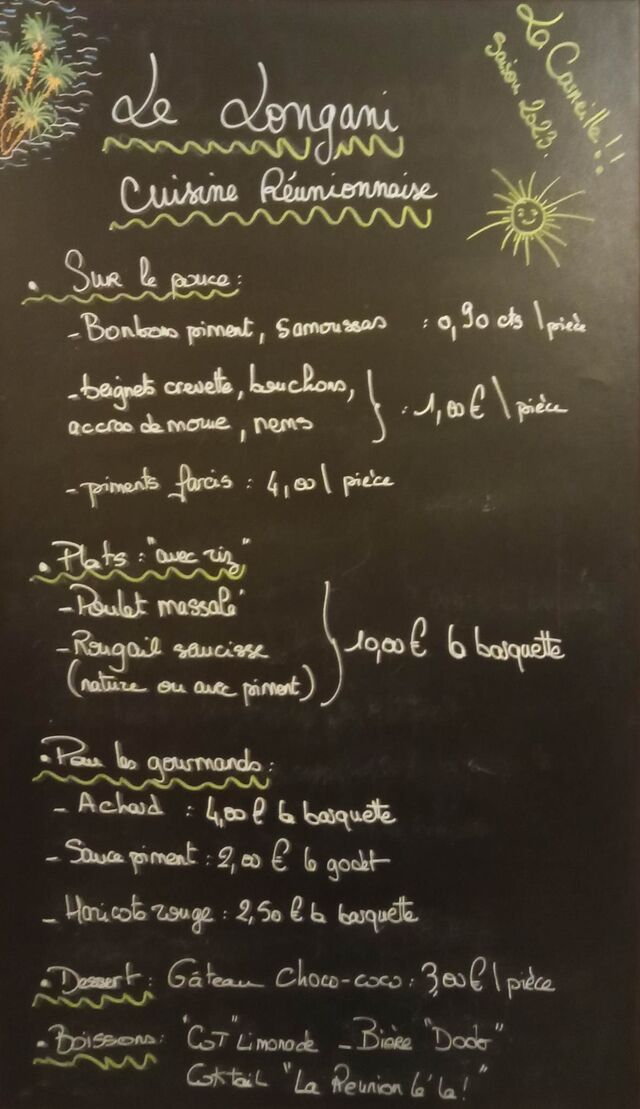 La Corneille!!
Saison 2023.
Le Longani
Cuisine Réunionnaise
• Sur le pouce:
- Bonbons piment, samoussas : 0,90 cts / pièce
- beignets crevette, bouchons,
accras de morue, nems } : 1,00€ / pièce
- piments farcis : 4,00 / pièce
• Plats : "avec riz"
- Poulet massalé
- Rougail saucisse } 10,00€ la barquette
(nature ou avec piment)
• Pour les gourmands:
- Achard : 4,00€ la barquette
- Sauce piment : 2,00 € le godet
- Haricots rouge : 2,50€ la barquette
• Dessert: Gâteau choco-coco : 3,00€ / pièce
• Boissons: "Cot" Limonade - Bière "Dodo"
Coktail "La Réunion lé la!"